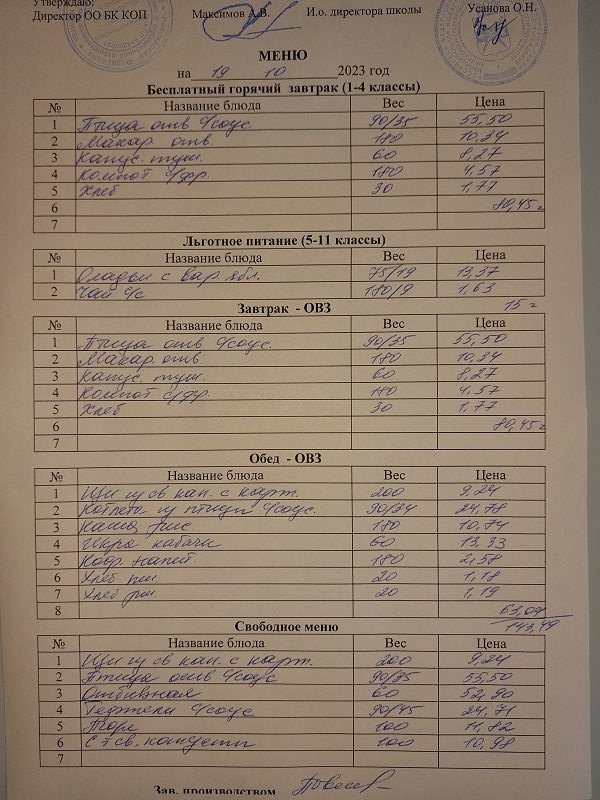 Утверждаю:
Директор ОО БК КОП Максимов А.В. И.о. директора школы Усанова О.Н.
МЕНЮ
на 19 10 2023 год
Бесплатный горячий завтрак (1-4 классы)
№ Название блюда Вес Цена
1 Птица отв с/соус 90/35 55,50
2 Макар. отв. 180 10,34
3 Капус. туш. 60 8,27
4 Компот с/фр. 180 4,57
5 Хлеб 30 1,77
6 80,45
7
Льготное питание (5-11 классы)
№ Название блюда Вес Цена
1 Оладьи с вар. ябл. 75/19 13,37
2 Чай с/с 180/9 1,63
15
Завтрак - ОВЗ
№ Название блюда Вес Цена
1 Птица отв с/соус. 90/35 55,50
2 Макар. отв. 180 10,34
3 Капус. туш. 60 8,27
4 Компот с/фр. 180 4,57
5 Хлеб 30 1,77
6 80,45
7
Обед - ОВЗ
№ Название блюда Вес Цена
1 Щи из св кап. с карт. 200 9,24
2 Котлета из птицы с/соус. 90/34 24,78
3 Каша рис 180 10,74
4 Икра кабачк 60 13,33
5 Кофр. напит. 180 2,58
6 Хлеб пш. 20 1,18
7 Хлеб рж. 20 1,19
8 63,04
143,49
Свободное меню
№ Название блюда Вес Цена
1 Щи из св кап. с карт. 200 9,24
2 Птица отв с/соус 90/35 55,50
3 Отбивная 60 52,90
4 Тефтели с/соус 90/45 24,71
5 100 11,82
6 С-т св. капусты 100 10,98
7
Зав. производством